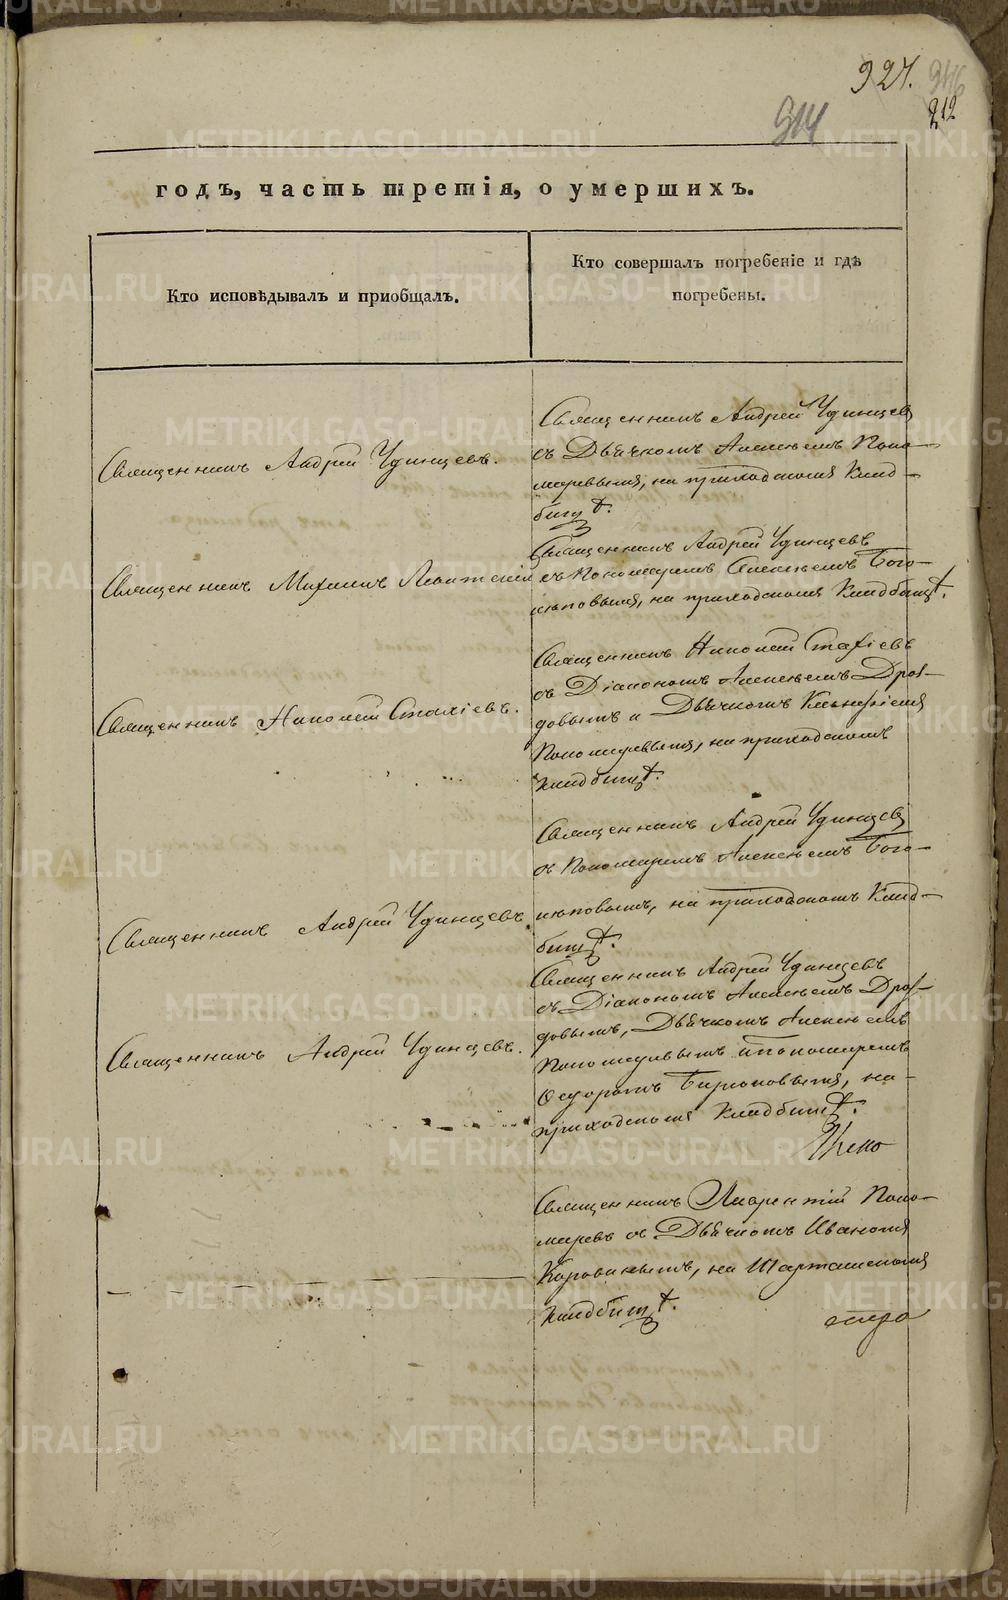 927.
946
914
212
годъ, часть третія, о умершихъ.
Кто исповѣдывалъ и приобщалъ.
Кто совершалъ погребеніе и гдѣ
погребены.
Священникъ Андрей Удинцевъ.
Священникъ Андрей Удинцев
съ Дьячкомъ Алексѣемъ Поно-
маревымъ, на приходскомъ Клад-
бищѣ.
Священникъ Михаилъ
Священникъ Андрей Удинцевъ
съ Пономаремъ Алексѣемъ Бого-
люповымъ, на приходскомъ Кладбищѣ.
Священникъ Николай Стахіевъ.
Священникъ Николай Стахіевъ
съ Діакономъ Алексѣемъ Дроз-
довымъ и Дьячкомъ
Пономаревымъ, на приходскомъ
Кладбищѣ.
Священникъ Андрей Удинцевъ.
Священникъ Андрей Удинцев
съ Пономаремъ Алексѣемъ Бого-
люповымъ, на приходскомъ Клад-
бищѣ.
Священникъ Андрей Удинцевъ.
Священникъ Андрей Удинцевъ
съ Діакономъ Алексѣемъ Дроз-
довымъ, Дьячкомъ Алексѣемъ
Пономаревымъ и Пономаремъ
Ѳедоромъ Бирюковымъ, на
приходскомъ Кладбищѣ.
Священникъ Лаврентій Поно-
маревъ съ Дьячкомъ Иваномъ
Коровинымъ, на Шарташскомъ
Кладбищѣ.
METRIKI.GASO-URAL.RU